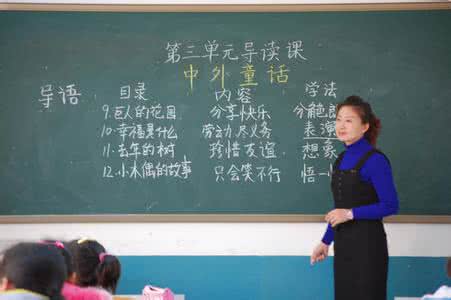 第三单元导读课
中外童话
导语 目录 内容 学法
9.巨人的花园 分享快乐 分角色朗
10.幸福是什么 劳动.尽义务 表演
11.去年的树 珍惜友谊 想象
12.小木偶的故事 只会笑不行 悟一